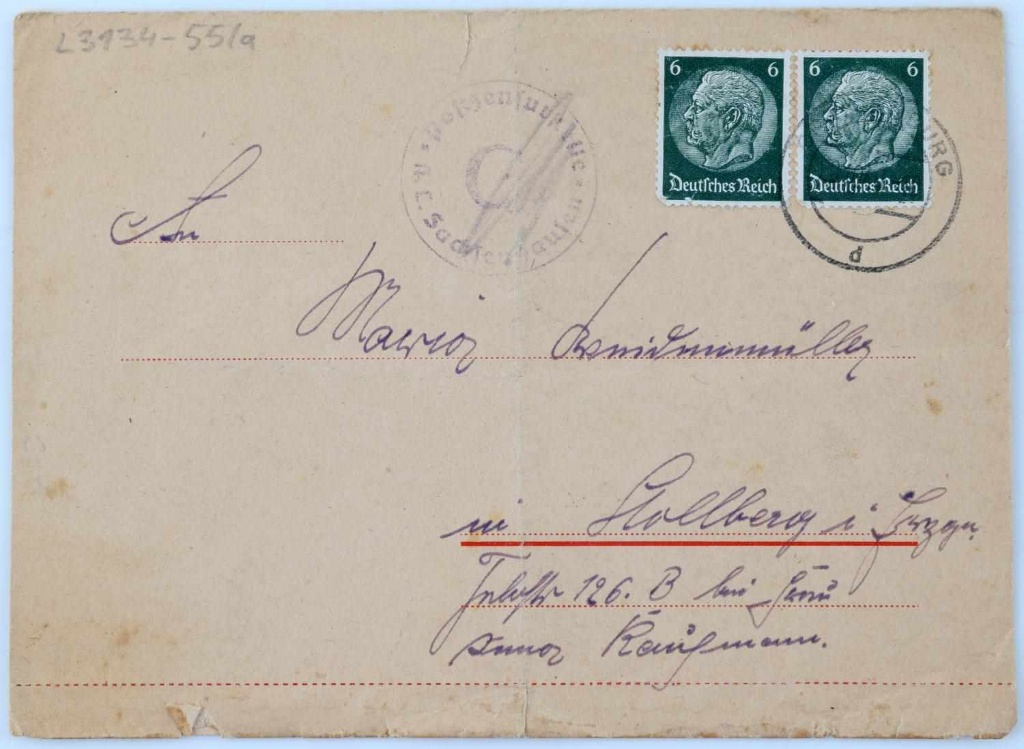 L3134-55/a
6 6
Deutsches Reich
6 6
Deutsches Reich
URG
d
Postzensurstelle
K.L. Sachsenhausen
An
Maria Weidenmüller
in Stollberg i Erzge.
126. B bei Frau
Anna Kaufmann.